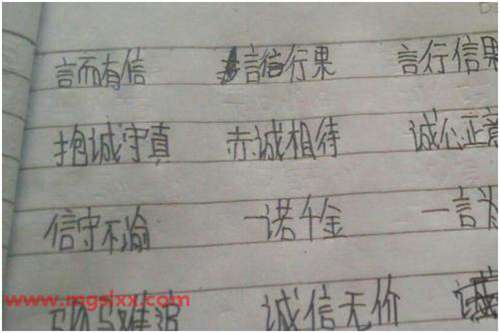 言而有信 言信行果 言行信果
抱诚守真 赤诚相待 诚心正意
信守不渝 一诺千金 一言为
驷马难追 诚信无价 诚
www.mgslxx.com